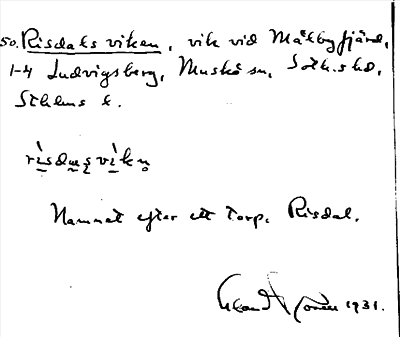 50. Risdalsviken, vik vid Mälbyfjärd,
1-4 Ludvigsberg, Muskö sn, Soth. shd,
Sthlms l.
rìsdɑsvìkn̥
Namnet efter ett torp. Risdal.
1931.